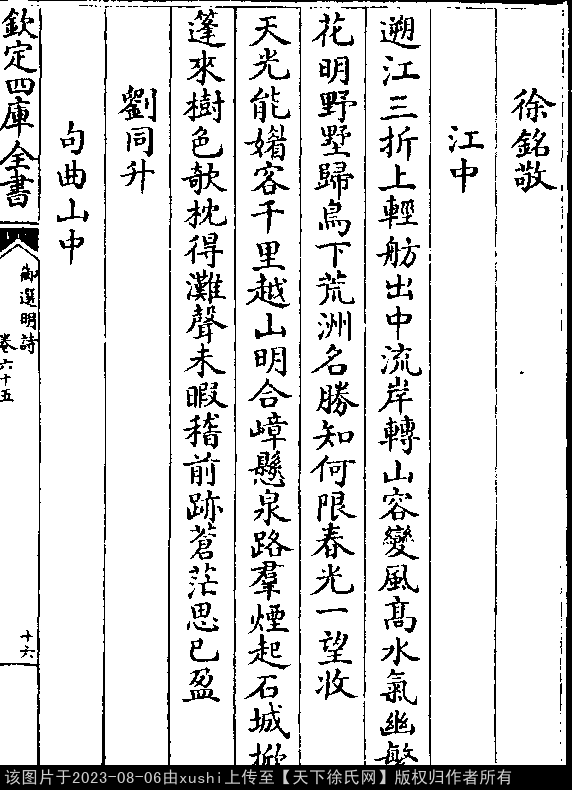 徐銘敬
江中
遡江三折上輕舫出中流岸轉山容變風髙水氣幽繁
花明野墅歸鳥下荒洲名勝知何限春光一望收
天光能媚客千里越山明合嶂懸泉路羣煙起石城掀
蓬來樹色欹枕得灘聲未暇稽前跡蒼茫思已盈
劉同升
句曲山中
欽定四庫全書
御選明詩
卷六十五
十六
该图片于2023-08-06由xushi上传至【天下徐氏网】版权归作者所有